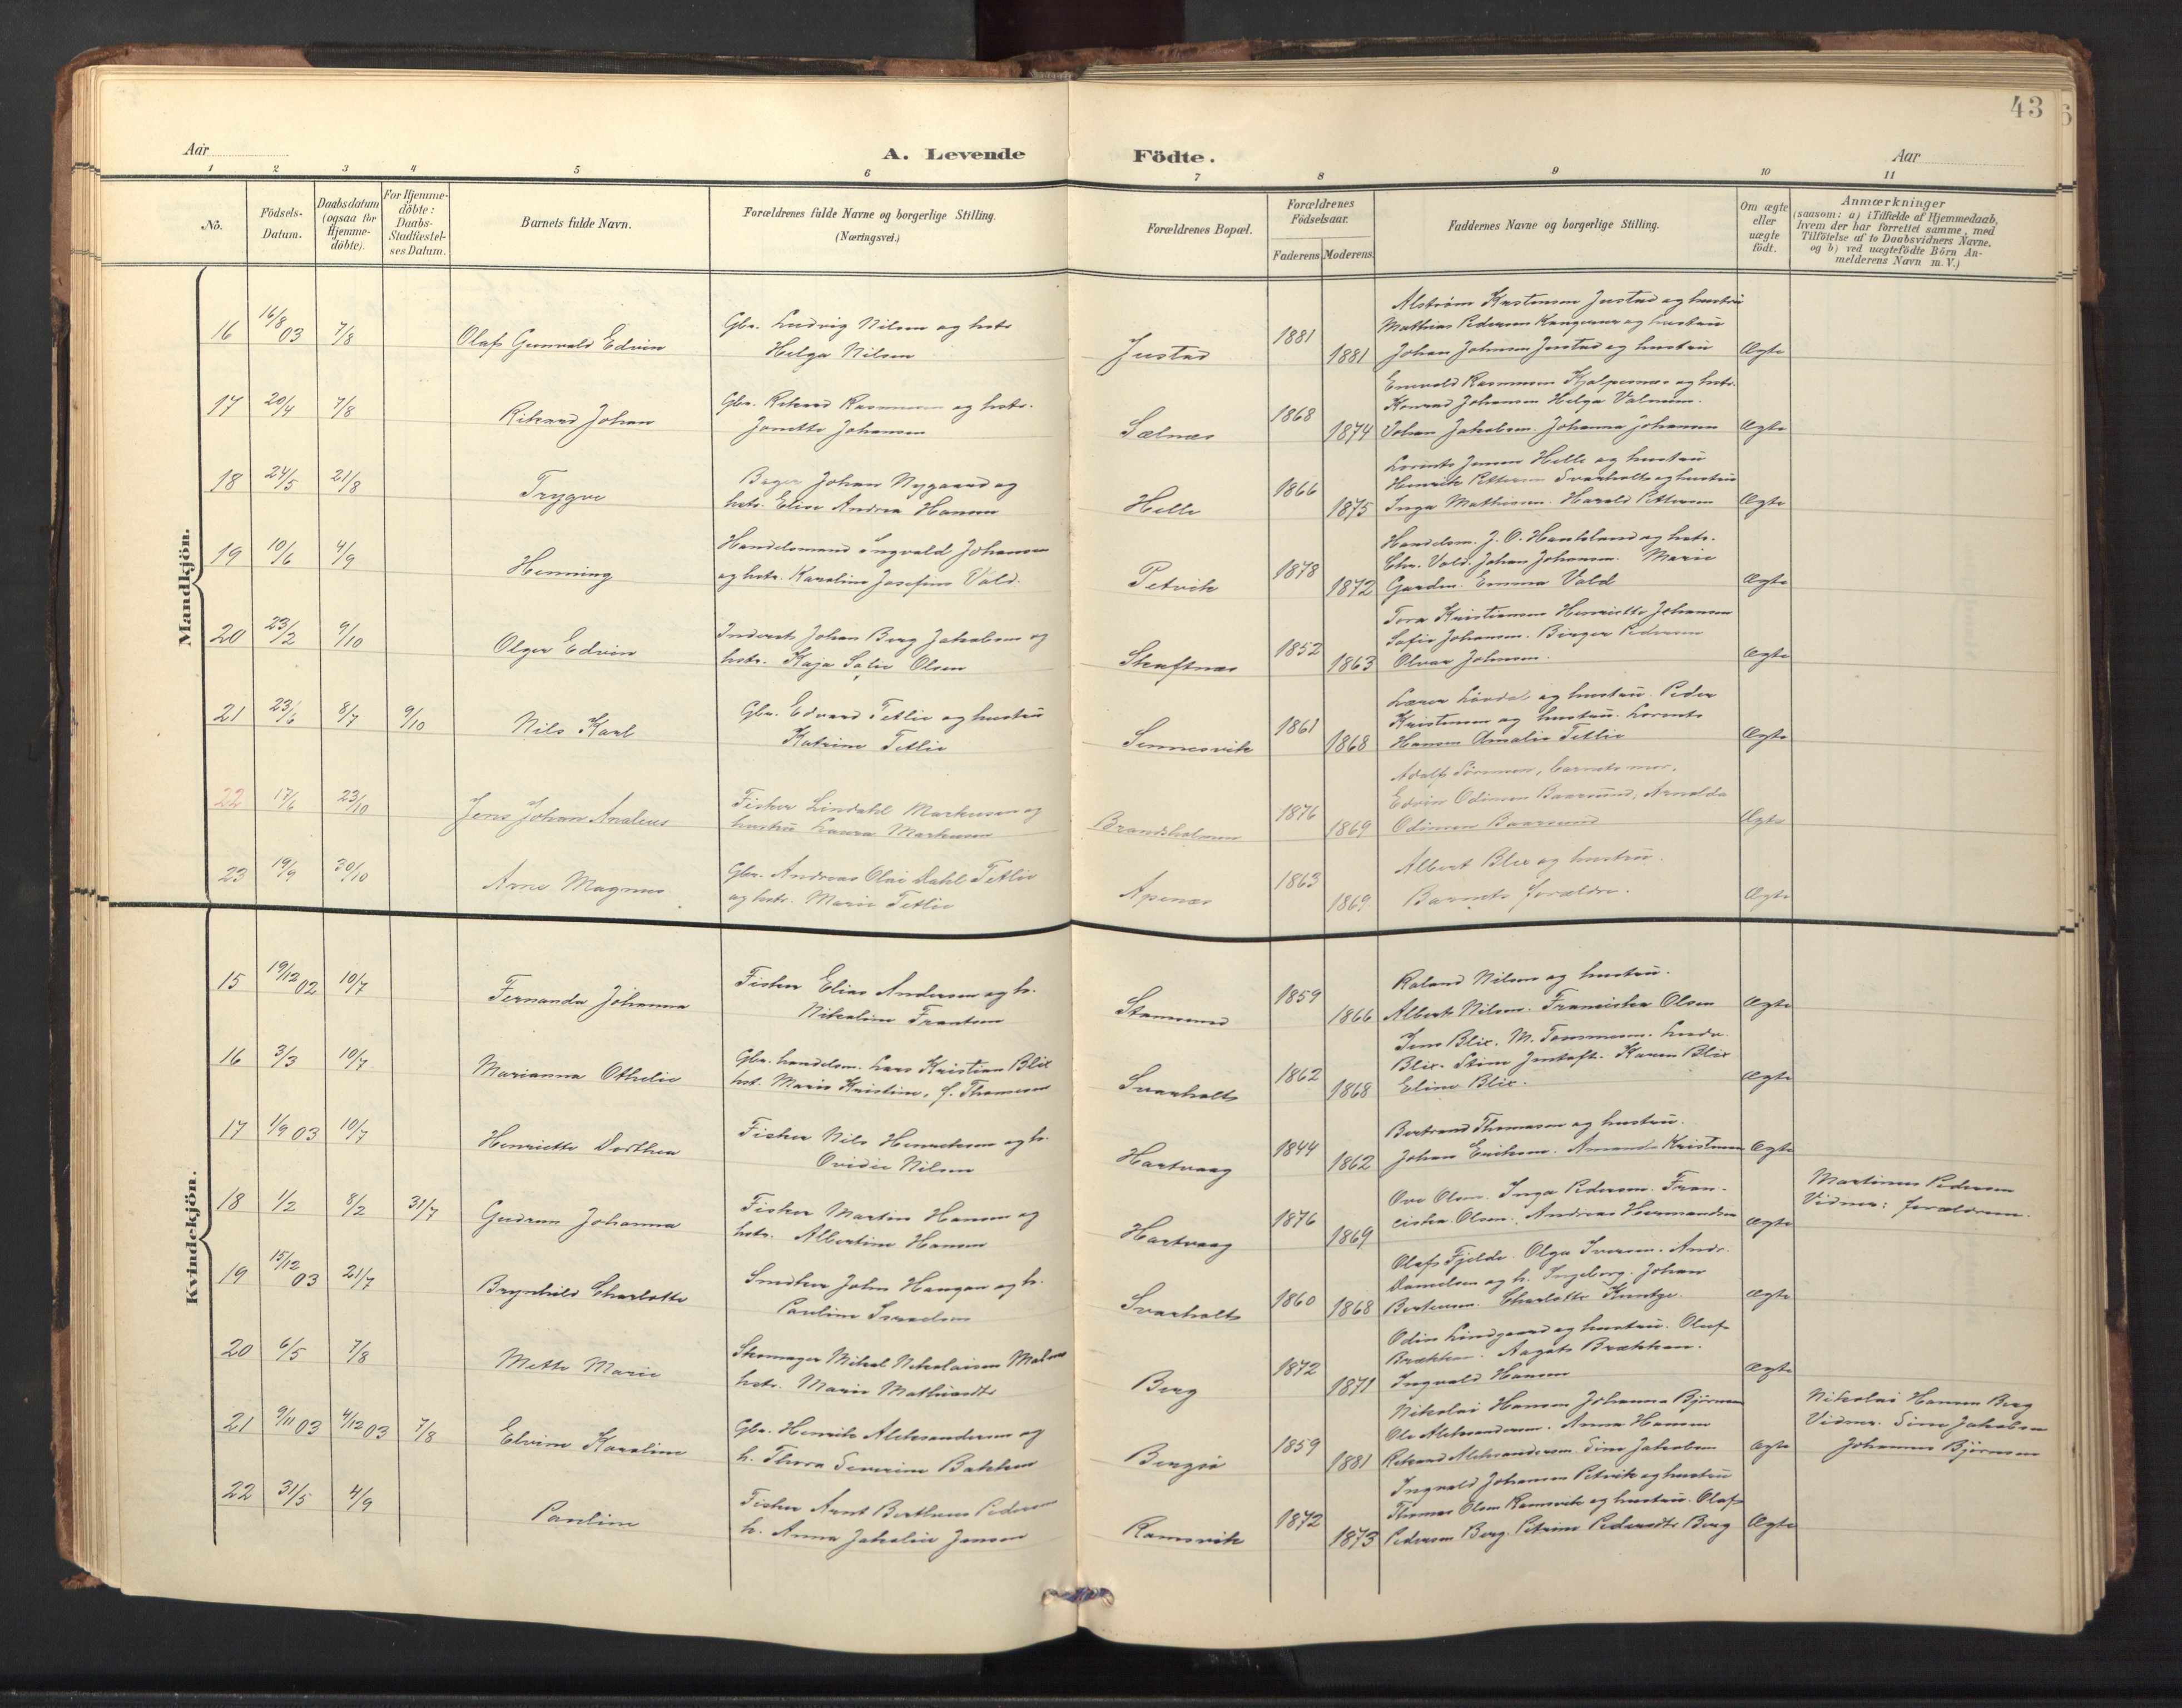 43
Aar
A. Levende
Födte.
Aar
1 2 3 4 5 6 7 8 9 10 11
No.
Födsels-
Datum.
Daabsdatum
(ogsaa for
Hjemme-
döbte).
For Hjemme-
döbte:
Daabs-
Stadfæstel-
ses Datum.
Barnets fulde Navn.
Forældrenes fulde Navne og borgerlige Stilling.
(Næringsvei.)
Forældrenes Bopæl.
Forældrenes
Födselsaar.
Faderens Moderens
Faddernes Navne og borgerlige Stilling.
Om ægte
eller
uægte
födt.
Anmærkninger
(saasom: a) i Tilfælde af Hjemmedaab,
hvem der har forrettet samme, med
Tilföielse af to Daabsvidners Navne,
og b) ved uægtefödte Börn An-
melderens Navn m.V.)
Mandkjön.
16 16/8 03 7/8 Olaf Gunvald Edvin
Gbr. Ludvig Nilsen og hstr
Helga Nilsen
Justad 1881 1881
Alström Kristensen Justad og hustru
Mathias Pedersen Kangerur og hustru
Johan Johnsen Justad og hustru Ægte
17 20/4 7/8 Rikard Johan
Gbr. Rikard Rasmussen og hstr.
Janette Johansen
Sælnæs 1868 1874
Enevold Rasmussen og hstr.
Konrad Johansen Helga Valnum.
Johan Jakobsen. Johanna Johansen Ægte
18 24/5 21/8 Trygve
Bager Johan Nygaard og
hstr. Elise Andrea Hansen
Helle 1866 1875
Lorents Jensen Helle og hustru
Henrik Pettersen Svarholt og hustru
Inga Mathisen. Harald Pettersen Ægte
19 10/6 4/9 Henning
Handelsmand Ingvald Johansen
og hstr. Karoline Josefine Vold.
Petvik 1878 1872
Handelsm. J. O. Haukland og hstr.
Chr. Vold. Johan Johansen. Marie
Garden. Emma Vold Ægte
20 23/2 9/10 Olger Edvin
Inderst Johan Berg Jakobsen og
hstr. Kaja Salie Olsen
Skaftnæs 1852 1863
Tora Kristiansen Henriette Johansen
Sofie Johansen. Birger Pedersen
Olvar Johnsen. Ægte
21 23/6 8/7 9/10 Nils Karl
Gbr. Edvard Tetlie og hustru
Katrine Tetlie
Sennesvik 1861 1868
Lærer Lövdal og hustru. Peder
Kristensen og hustru. Lorents
Hansen Amalie Tetlie Ægte
22 17/6 23/10 Jens Johan Analeus
Fisker Lindahl Markussen og
hustru Laura Markussen
Brandsholmen 1876 1869
Adolf Sörensen, barnets mor,
Edvin Odinsen Baarsund, Arnolda
Odinsen Baarsund Ægte
23 19/9 30/10 Arne Magnus
Gbr. Andreas Olai Dahl Tetlie
og hstr. Marie Tetlie
Apenæs 1863 1869
Albert Blix og hustru.
Barnets forældre. Ægte
Kvindekjön.
15 19/12 02 10/7 Fernanda Johanna
Fisker Elias Andersen og h.
Nikoline Frantsen
Stamsund 1859 1866
Roland Nilsen og hustru.
Albert Nilsen. Franciska Olsen Ægte
16 3/3 10/7 Marianna Othelie
Gbr. handelsm. Lars Kristian Blix
hst. Marie Kristine, f. Thomesen
Svarholt 1862 1868
Jens Blix. M. Tommesen.
Blix. Stine Karen Blix
Eline Blix. Ægte
17 1/9 03 10/7 Henriette Dorthea
Fisker Nils Henriksen og h.
Ovidie Nilsen
Hartvaag 1844 1862
Bertrand Thomassen og hustru.
Johan Eriksen. Amanda Kristensen Ægte
18 1/2 8/2 31/7 Gudrun Johanna
Fisker Martin Hansen og
hstr. Albertine Hansen
Hartvaag 1876 1869
Ove Olsen. Inga Pedersen. Fran-
ciska Olsen. Andreas Hermandsen Ægte
Martinus Pedersen
Vidner: forældrene.
19 15/12 03 21/7 Brynhild Charlotte
Snedker John Haugan og h.
Pauline Israelsen
Svarholt 1860 1868
Olaf Fjelde. Olga Iversen. Andr.
Danielsen og h. Ingeborg. Johan
Bertensen. Charlotte Kuntze. Ægte
20 6/5 7/8 Mette Marie
Skomager Mikal Nikolaisen Malnes
hstr. Marie Mathisdtr
Berg 1872 1871
Odin Lindgaard og hustru. Oluf
Brækkan. Aagot Brækkan.
Ingvald Hansen Ægte
21 9/11 03 4/12 03 7/8 Elvine Karoline
Gbr. Henrik Aleksandersen og
h. Thora Severine Bakken
Bergsö 1859 1881
Nikolai Hansen Johanna Björnsen
Ole Aleksandersen. Anna Hansen
Rikard Aleksandersen. Sine Jakobsen Ægte
Nikolai Hansen Berg
Vidner. Sine Jakobsen
Johannes Björnsen
22 31/5 4/9 Pauline
Fisker Arnt Bertheus Pedersen
h. Anna Jakobie Jensen
Ramsvik 1872 1873
Ingvald Johansen Petvik og hustru
Thomas Olsen Ramsvik og hustru. Olaf
Pedersen Berg. Petrine Pedersdtr Berg Ægte